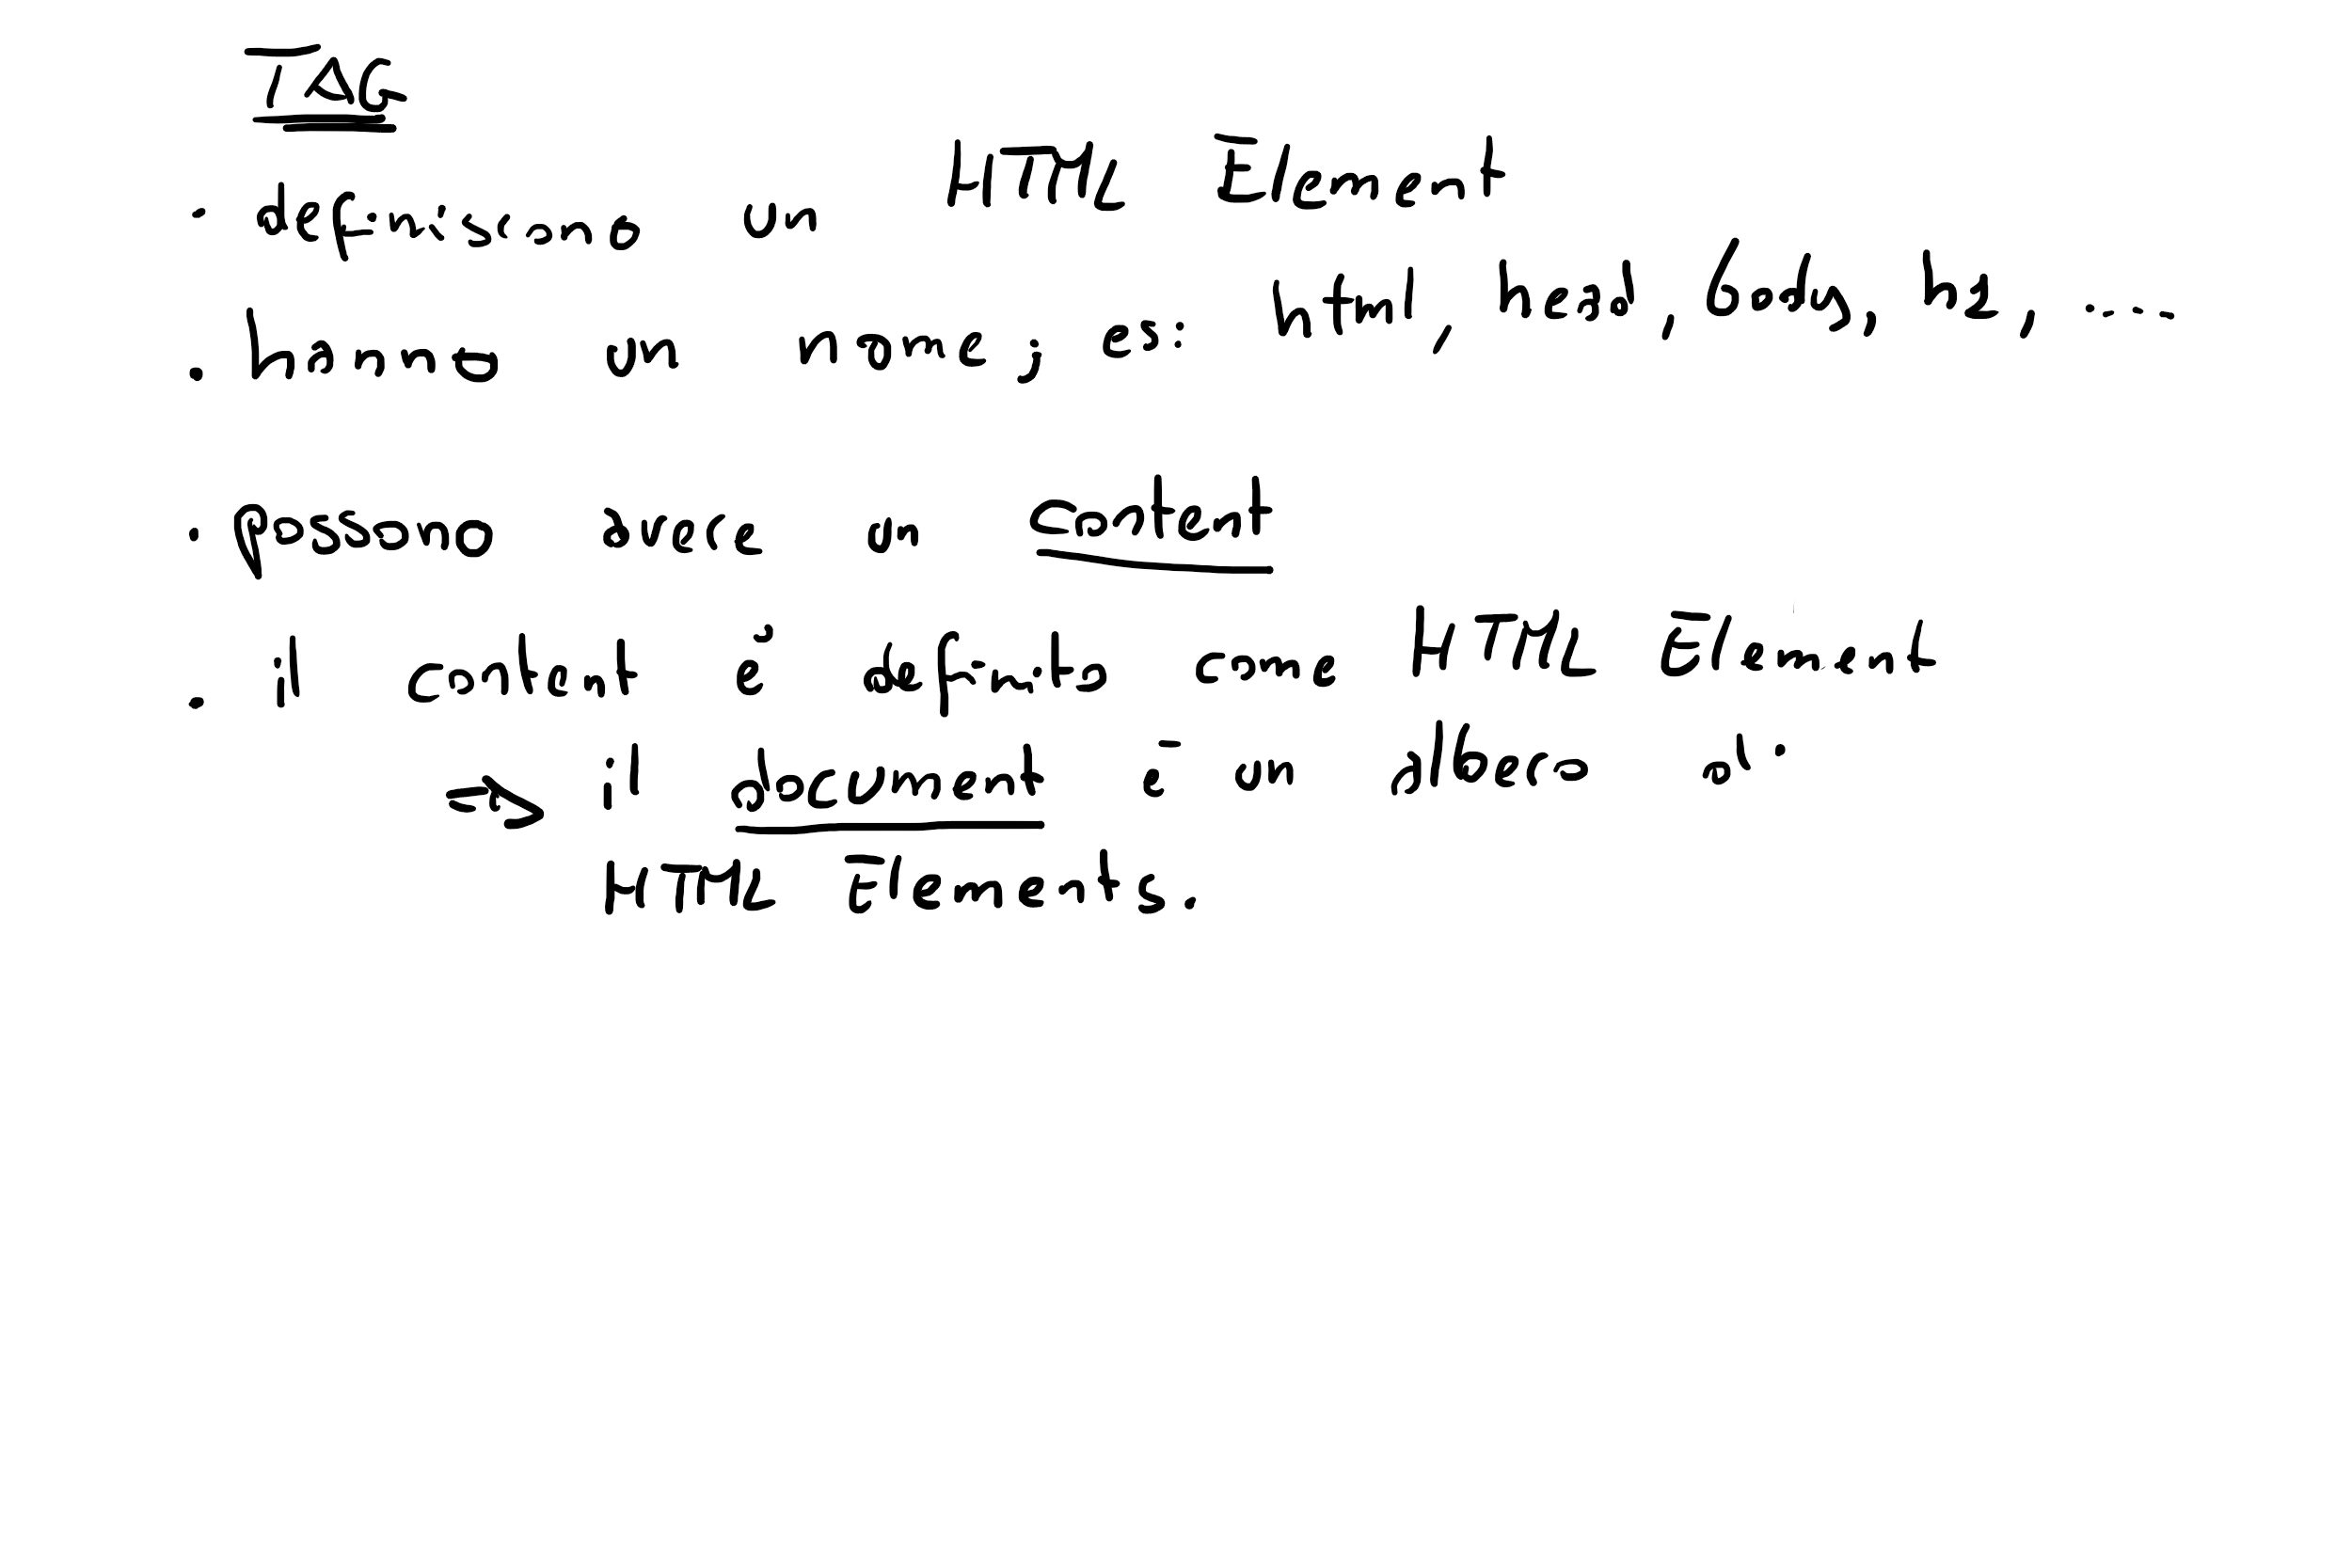 TAG
· definiscono un HTML Element
· hanno un nome; es: html, head, body, h2, ....
· possono avere un content
· il content è definito come HTML Element
⇒ il document è un albero di
HTML Elements.